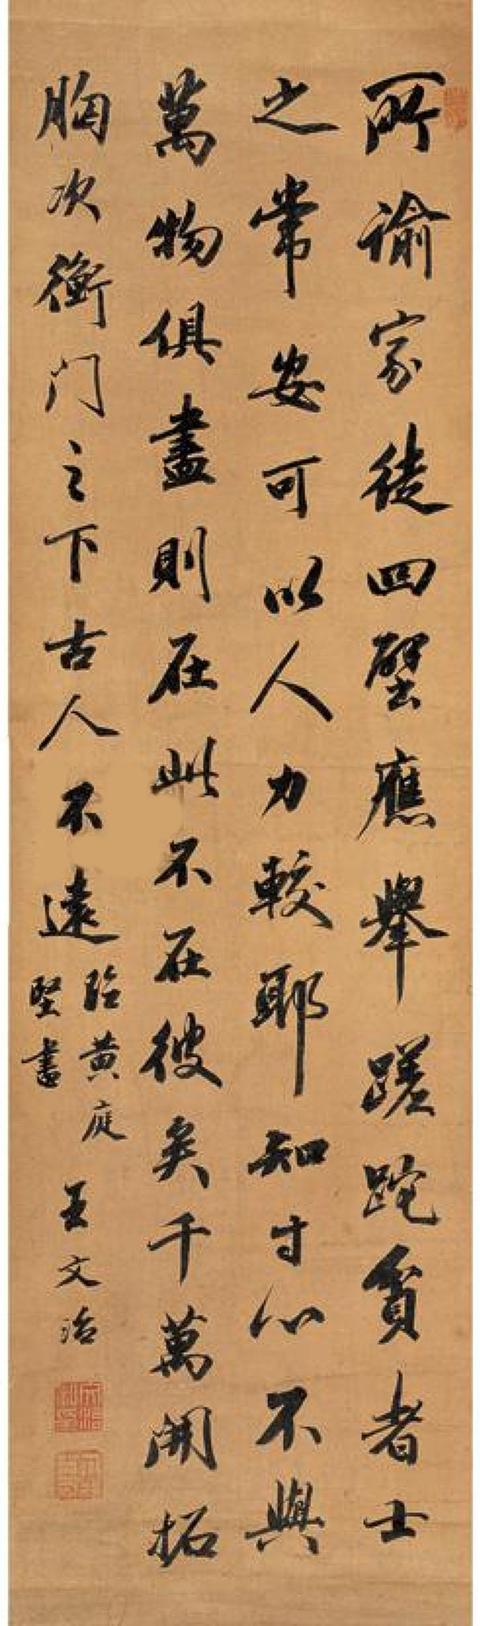 所諭家徒四壁應舉蹉跎貧者士
之常安可以人力較耶知寸心不與
萬物俱盡則在此不在彼矣千萬開拓
胸次衡门之下古人不遠
臨黄庭
堅書
王文治